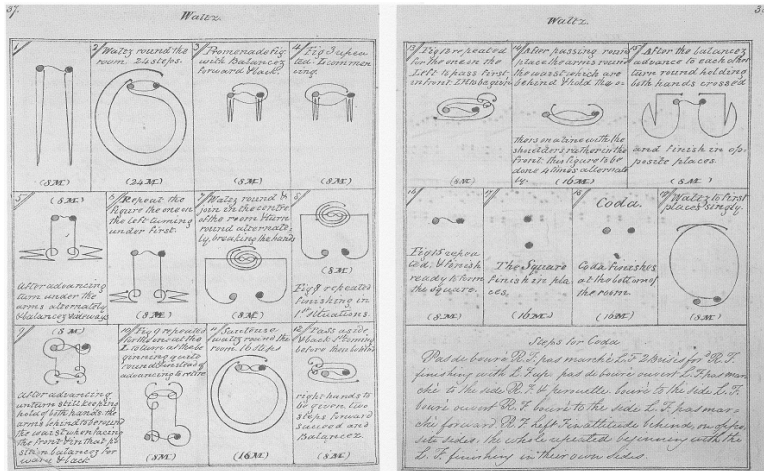 37.
Waltz.
1/
(8 M.)
2/ Waltz round the
room. 24 steps.
(24 M.)
3/ Promenade fig
with Balancez
forward & back.
(8 M.)
4/ Fig 3 repea
ted. L commen
cing.
(8 M.)
5/
(8 M.)
After advancing
turn under the
arms alternately
& balancez sideways
(8 M.)
6/ Repeat the
figure the one in
the left turning
under first.
(8 M.)
7/ Waltz round &
join in the centre
of the room & turn
round alternate
ly, breaking the hands
(8 M.)
8
(8 M.)
Fig 7 repeated
finishing in
1st situations.
9
After advancing
unturn still keeping
hold of both hands, the
arms behind & round
the waist when facing
the front & in that po
sition balancez for
ward & back
10/ Fig 9 repeated
ginning quite
round instead of
advancing to retire
(8 M.)
11/ Sauteuse
waltz round the
room. 16 steps
(16 M.)
12/ Pass aside
& back
right hands to
be given, five
steps forward
and
Balancez.
(8 M.)
Waltz.
13/ Fig 12 repeated
for the one in the
Left to pass first
in front.
(8 M.)
14/ After passing round
place the arms round
the waist which are
behind & hold the o
thers on a line with the
shoulders rather in the
front. this figure to be
done 4 times alternate
ly. (16 M.)
15/ After the balancez
advance to each other
turn round holding
both hands crossed
and finish in op
posite places.
(8 M.)
16
Fig 15 repea
ted. & finish
ready to form
the square.
17
The Square
finish in pla
ces.
(16 M.)
18
Coda.
Coda finishes
at the bottom of
the room.
(16 M.)
19/ Waltz to first
places singly.
(8 M.)
Steps for Coda
Pas de bouré R.F. pas marché L.F.
finishing with L.F. up pas de bouré ouvert L.F. pas mar
ché to the side R.F. & pirouette. bouré to the side L.F.
bouré ouvert R.F. bouré to the side L.F. pas mar
ché forward R.F. left in attitude behind, on oppo
site sides. the whole repeated beginning with the
L.F. finishing in their own sides.